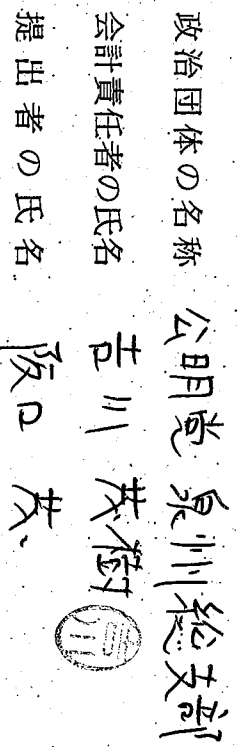 政治団体の名称 公明党 泉州総支部
会計責任者の氏名 吉川 茂樹 吉川
提出者の氏名 阪口 茂